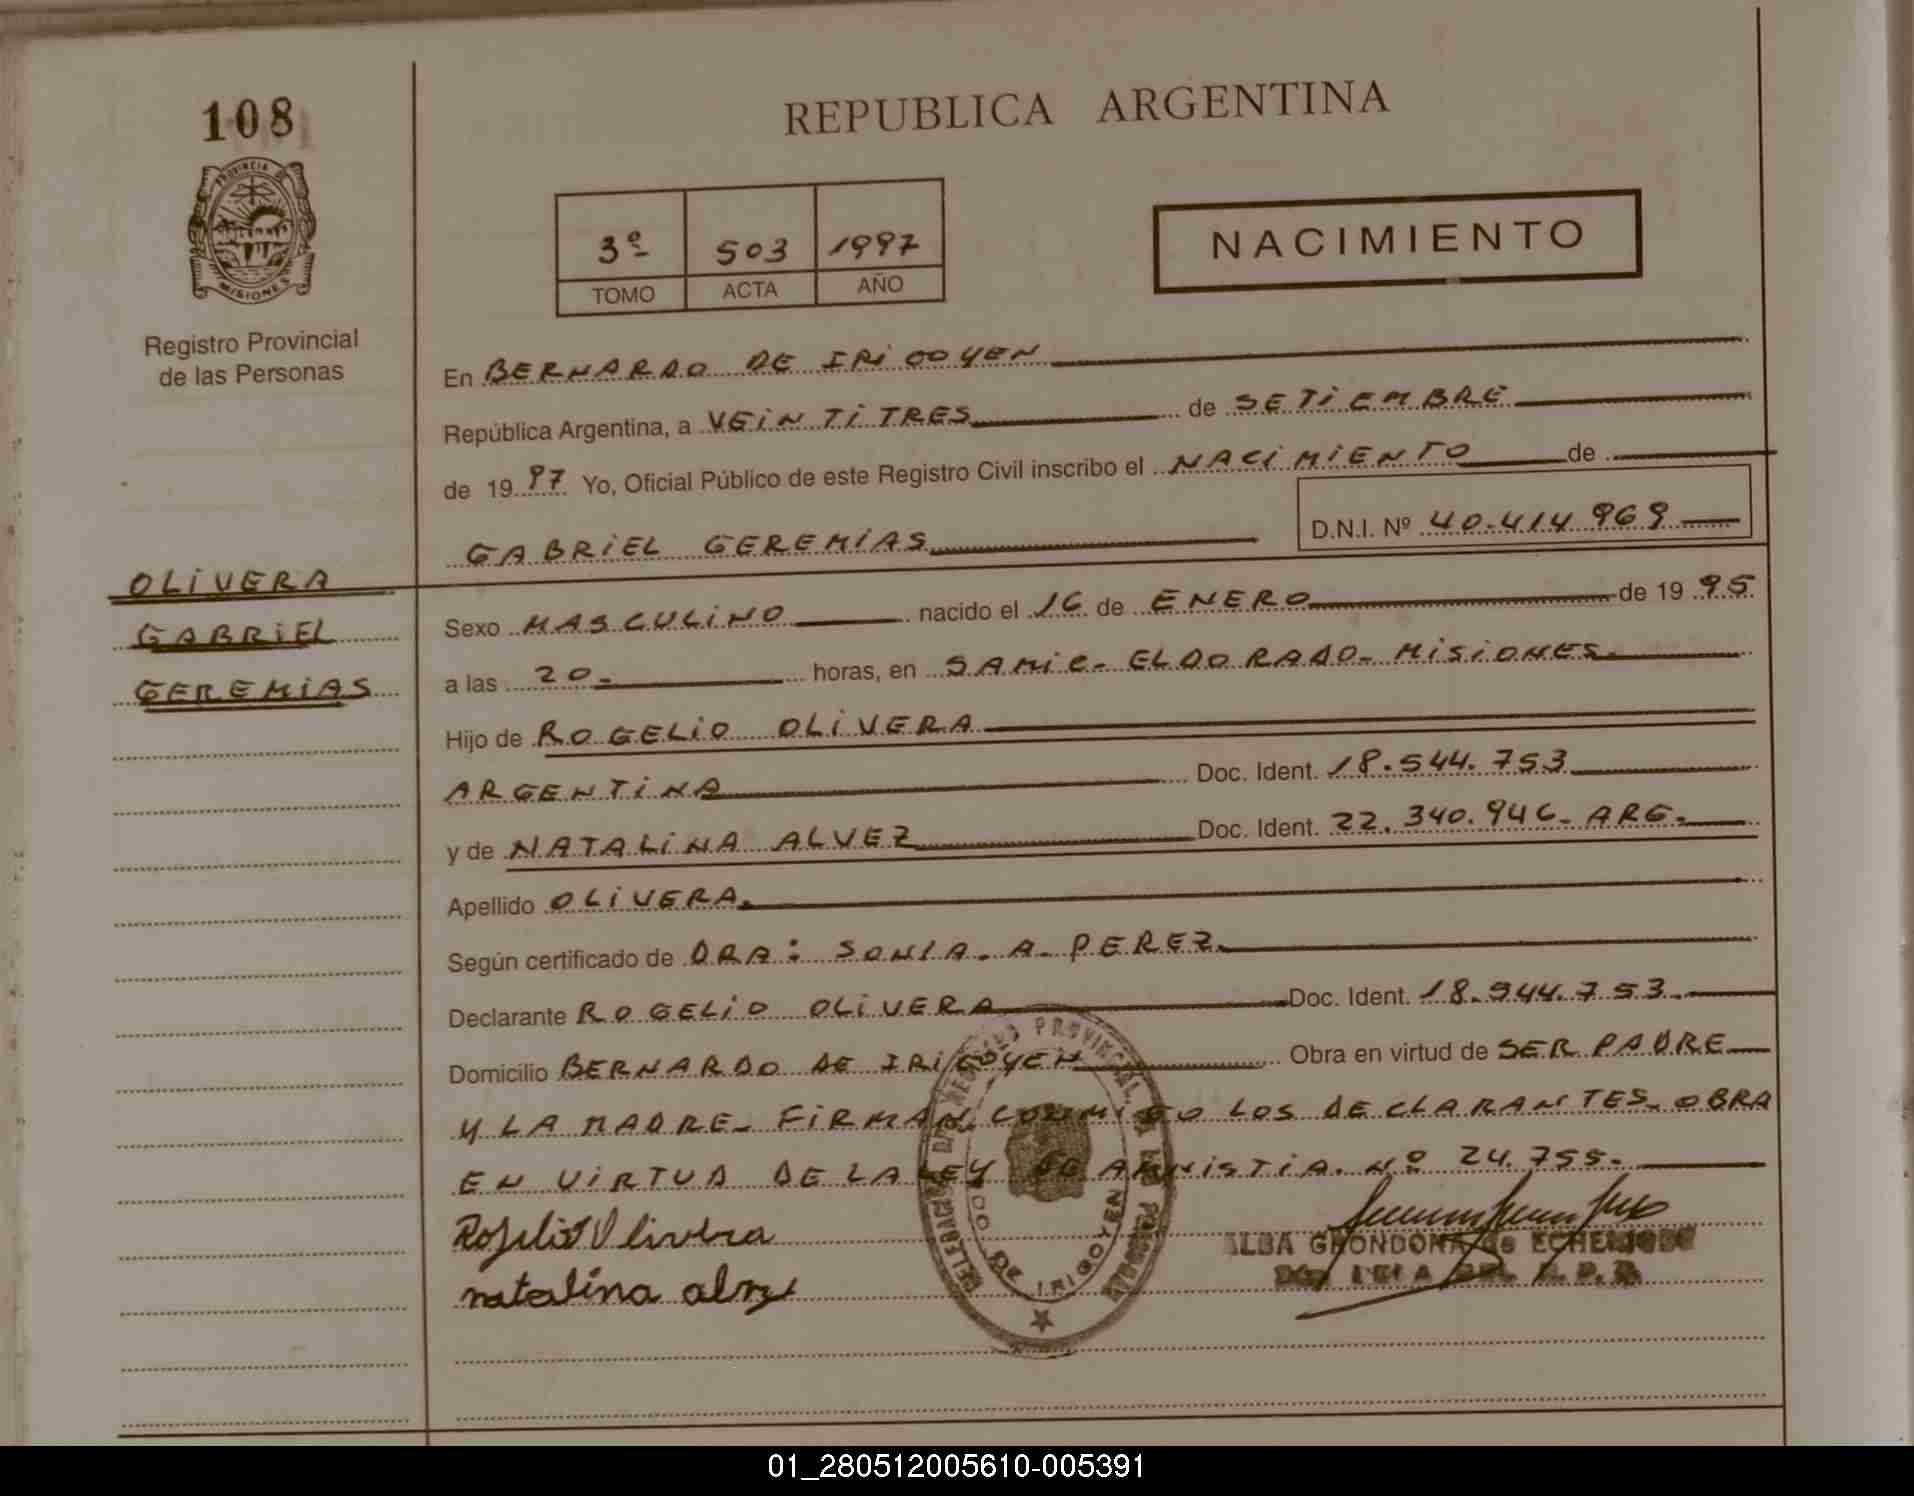 108
REPUBLICA ARGENTINA
PROVINCIA DE
MISIONES
3º 503 1997
TOMO ACTA AÑO
NACIMIENTO
Registro Provincial
de las Personas
En BERNARDO DE IRIGOYEN
República Argentina, a VEINTITRES de SETIEMBRE
de 1997 Yo, Oficial Público de este Registro Civil inscribo el NACIMIENTO de
GABRIEL GEREMIAS D.N.I. Nº 40.414.969
OLIVERA
GABRIEL
GEREMIAS
Sexo MASCULINO nacido el 16 de ENERO de 1995
a las 20 horas, en SAMIC - ELDORADO - MISIONES
Hijo de ROGELIO OLIVERA
ARGENTINA Doc. Ident. 18.544.753
y de NATALINA ALVEZ Doc. Ident. 22.340.946 - ARG.
Apellido OLIVERA.
Según certificado de DRA: SONIA. A. PEREZ.
Declarante ROGELIO OLIVERA Doc. Ident. 18.544.753.
Domicilio BERNARDO DE IRIGOYEN Obra en virtud de SER PADRE
Y LA MADRE - FIRMAN CONMIGO LOS DECLARANTES - OBRA
EN VIRTUD DE LA LEY DE AMNISTIA. Nº 24.755.
Rogelio Olivera
natalina alvez
DELEGACION DEL REGISTRO PROVINCIAL DE LAS PERSONAS
BDO DE IRIGOYEN
ALBA GRONDONA de
01_280512005610-005391